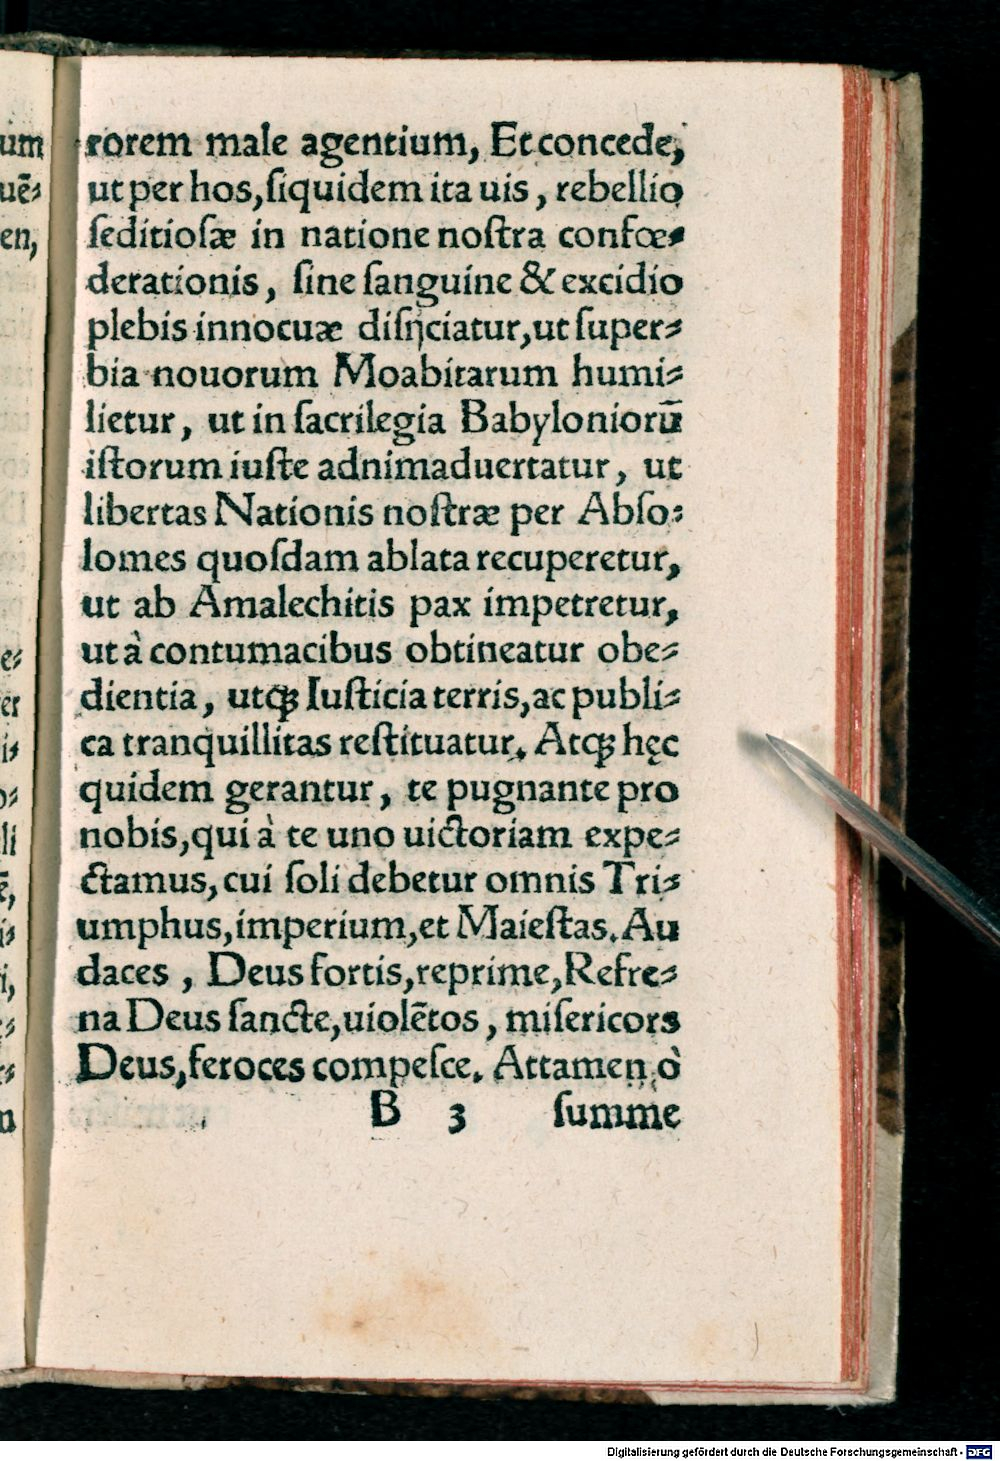 um
uē⸗
en,
rorem male agentium, Et concede,
ut per hos, ſiquidem ita uis, rebellio
ſeditioſæ in natione noſtra confœ⸗
derationis, ſine ſanguine & excidio
plebis innocuæ diſijciatur, ut ſuper⸗
bia nouorum Moabitarum humi⸗
lietur, ut in ſacrilegia Babyloniorū
iſtorum iuſte adnimaduertatur, ut
libertas Nationis noſtræ per Abſo⸗
lomes quoſdam ablata recuperetur,
ut ab Amalechitis pax impetretur,
ut à contumacibus obtineatur obe⸗
dientia, utqꝫ Iuſticia terris, ac publi⸗
ca tranquillitas reſtituatur. Atqꝫ hęc
quidem gerantur, te pugnante pro
nobis, qui à te uno uictoriam expe⸗
ctamus, cui ſoli debetur omnis Tri⸗
umphus, imperium, et Maieſtas. Au
daces, Deus fortis, reprime, Refre⸗
na Deus ſancte, uiolētos, miſericors
Deus, feroces compeſce. Attamen ò
B 3 ſumme
Digitalisierung gefördert durch die Deutsche Forschungsgemeinschaft - DFG